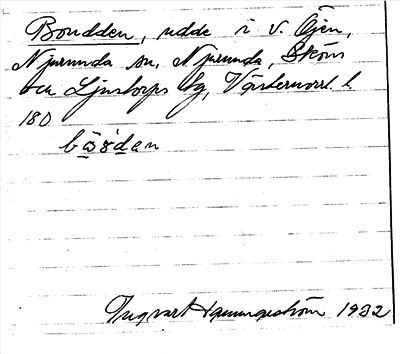 Boudden, udde i v. Öjen,
Njurunda sn, Njurunda, Sköns
och Ljustorps tg, Västernorrl. l.
180
Ingvart Hammarström 1932